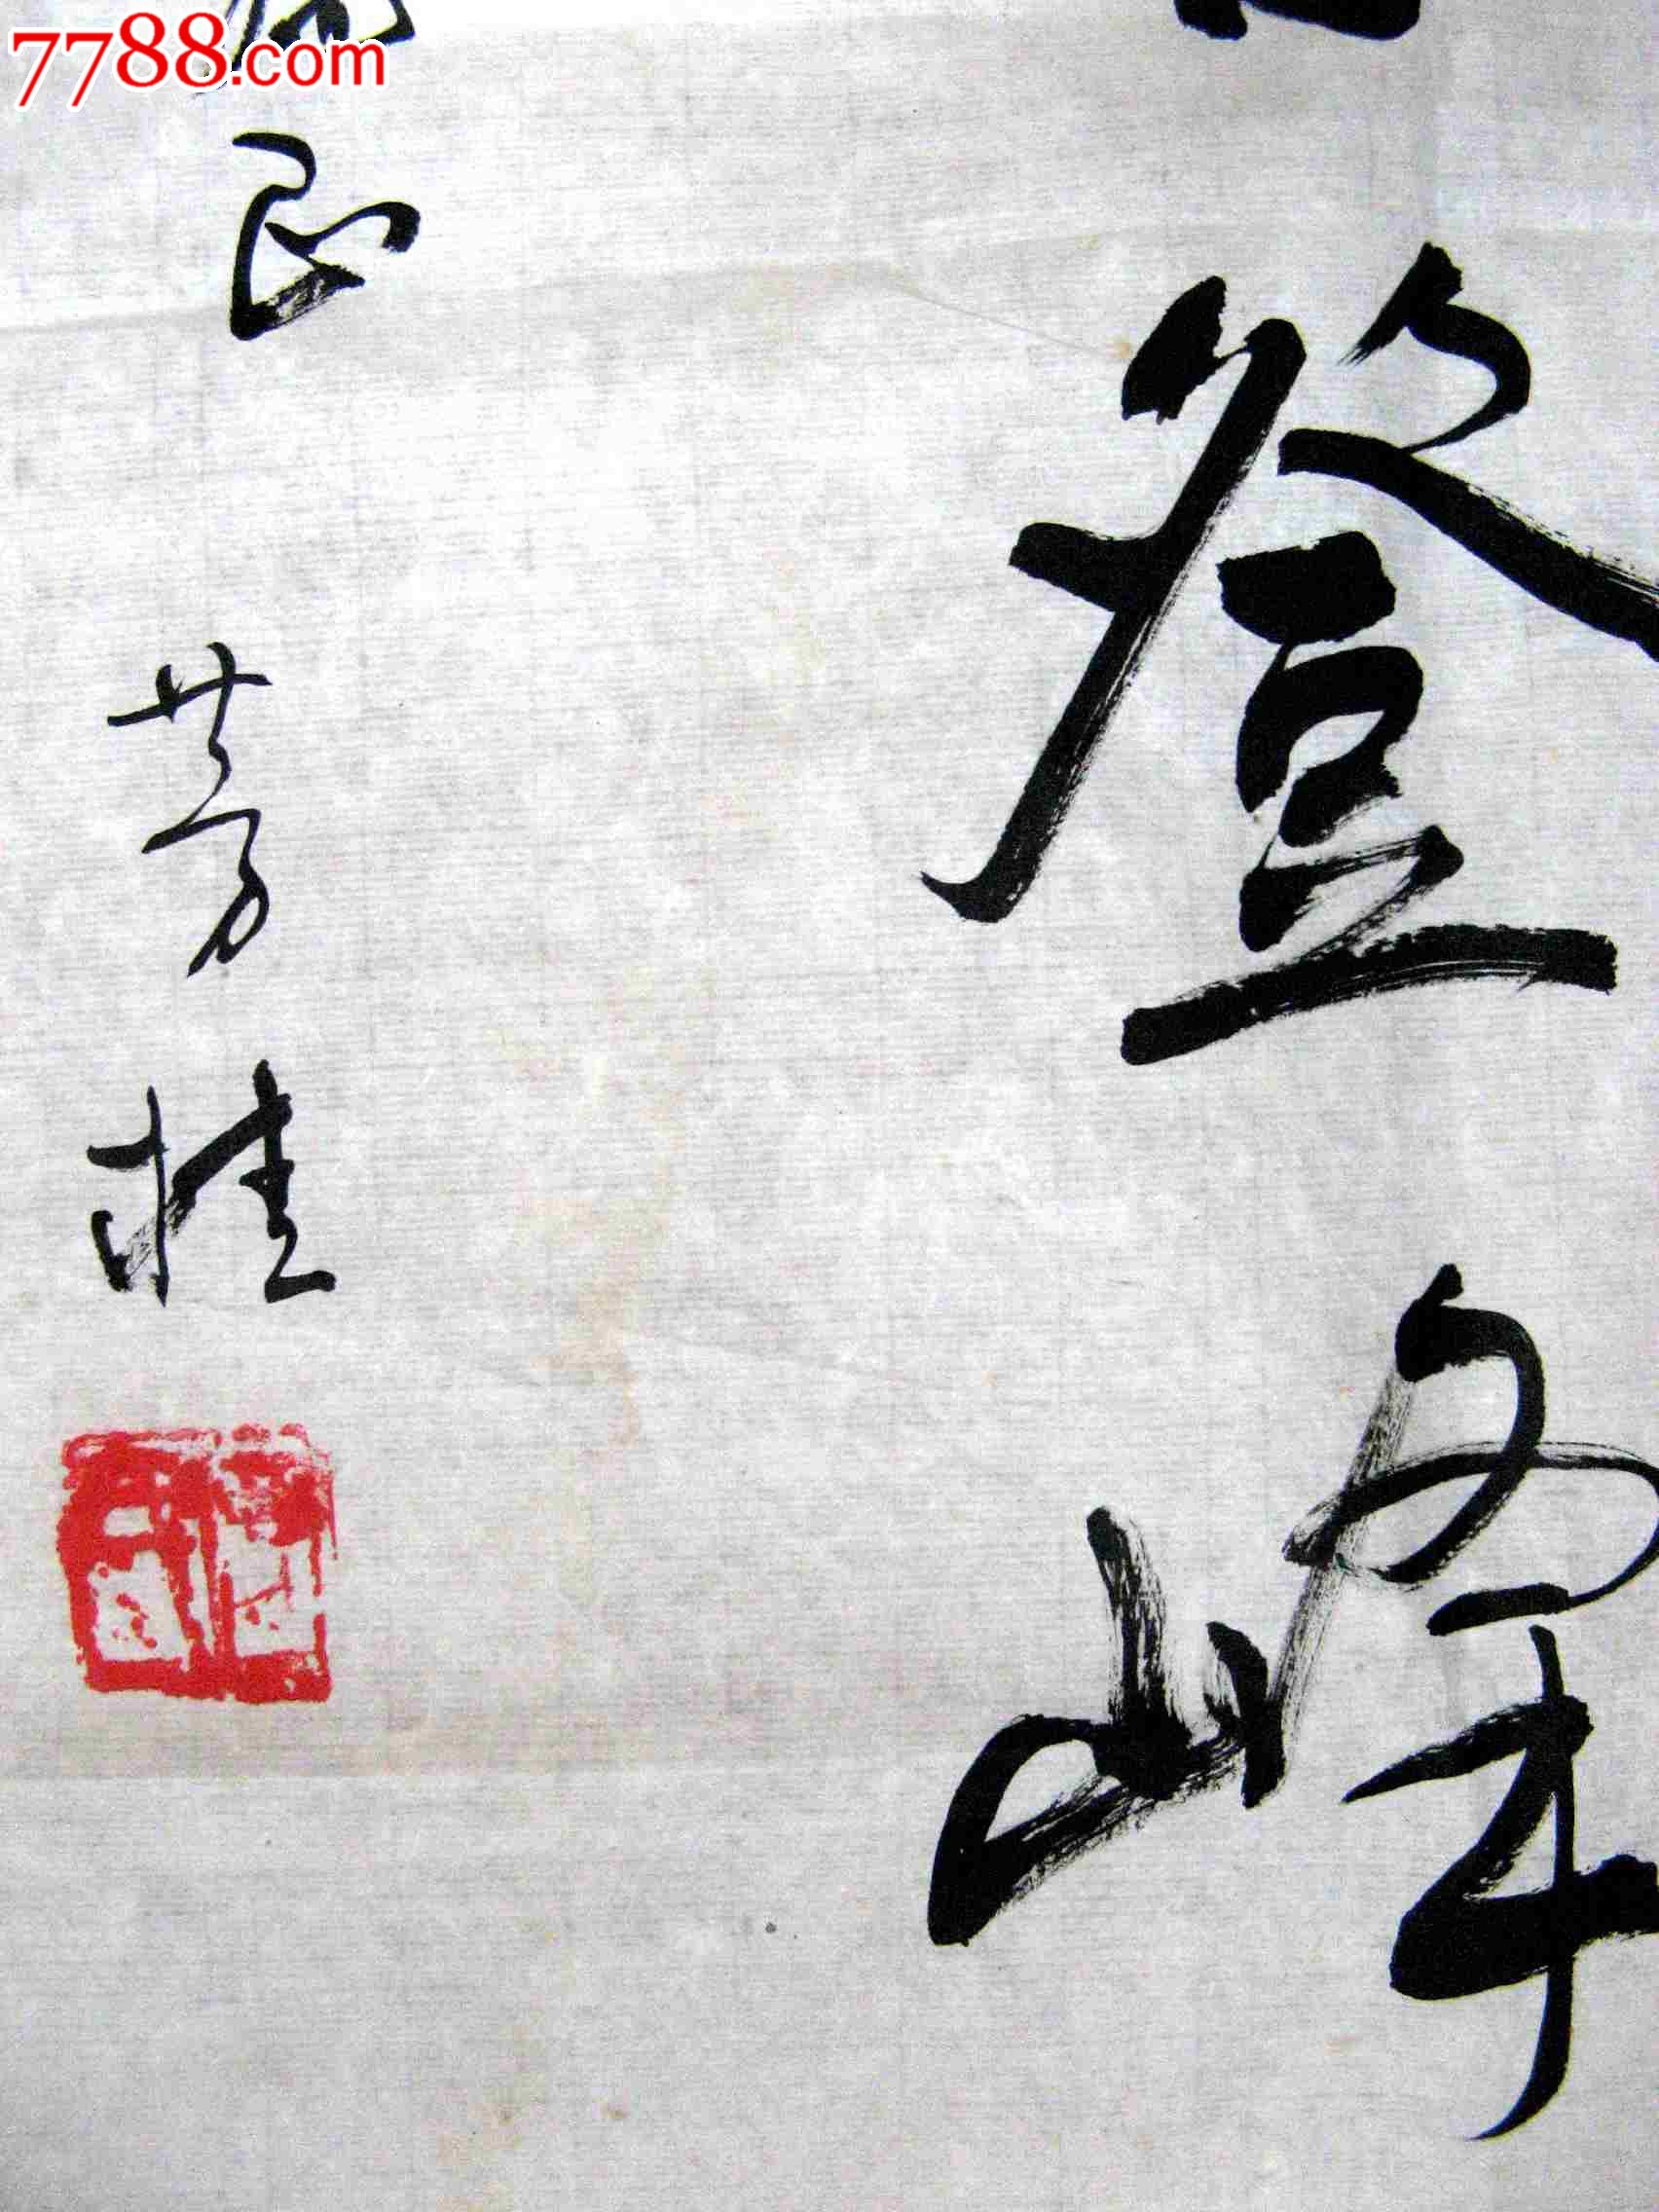 7788.com
登峰
正
芳桂